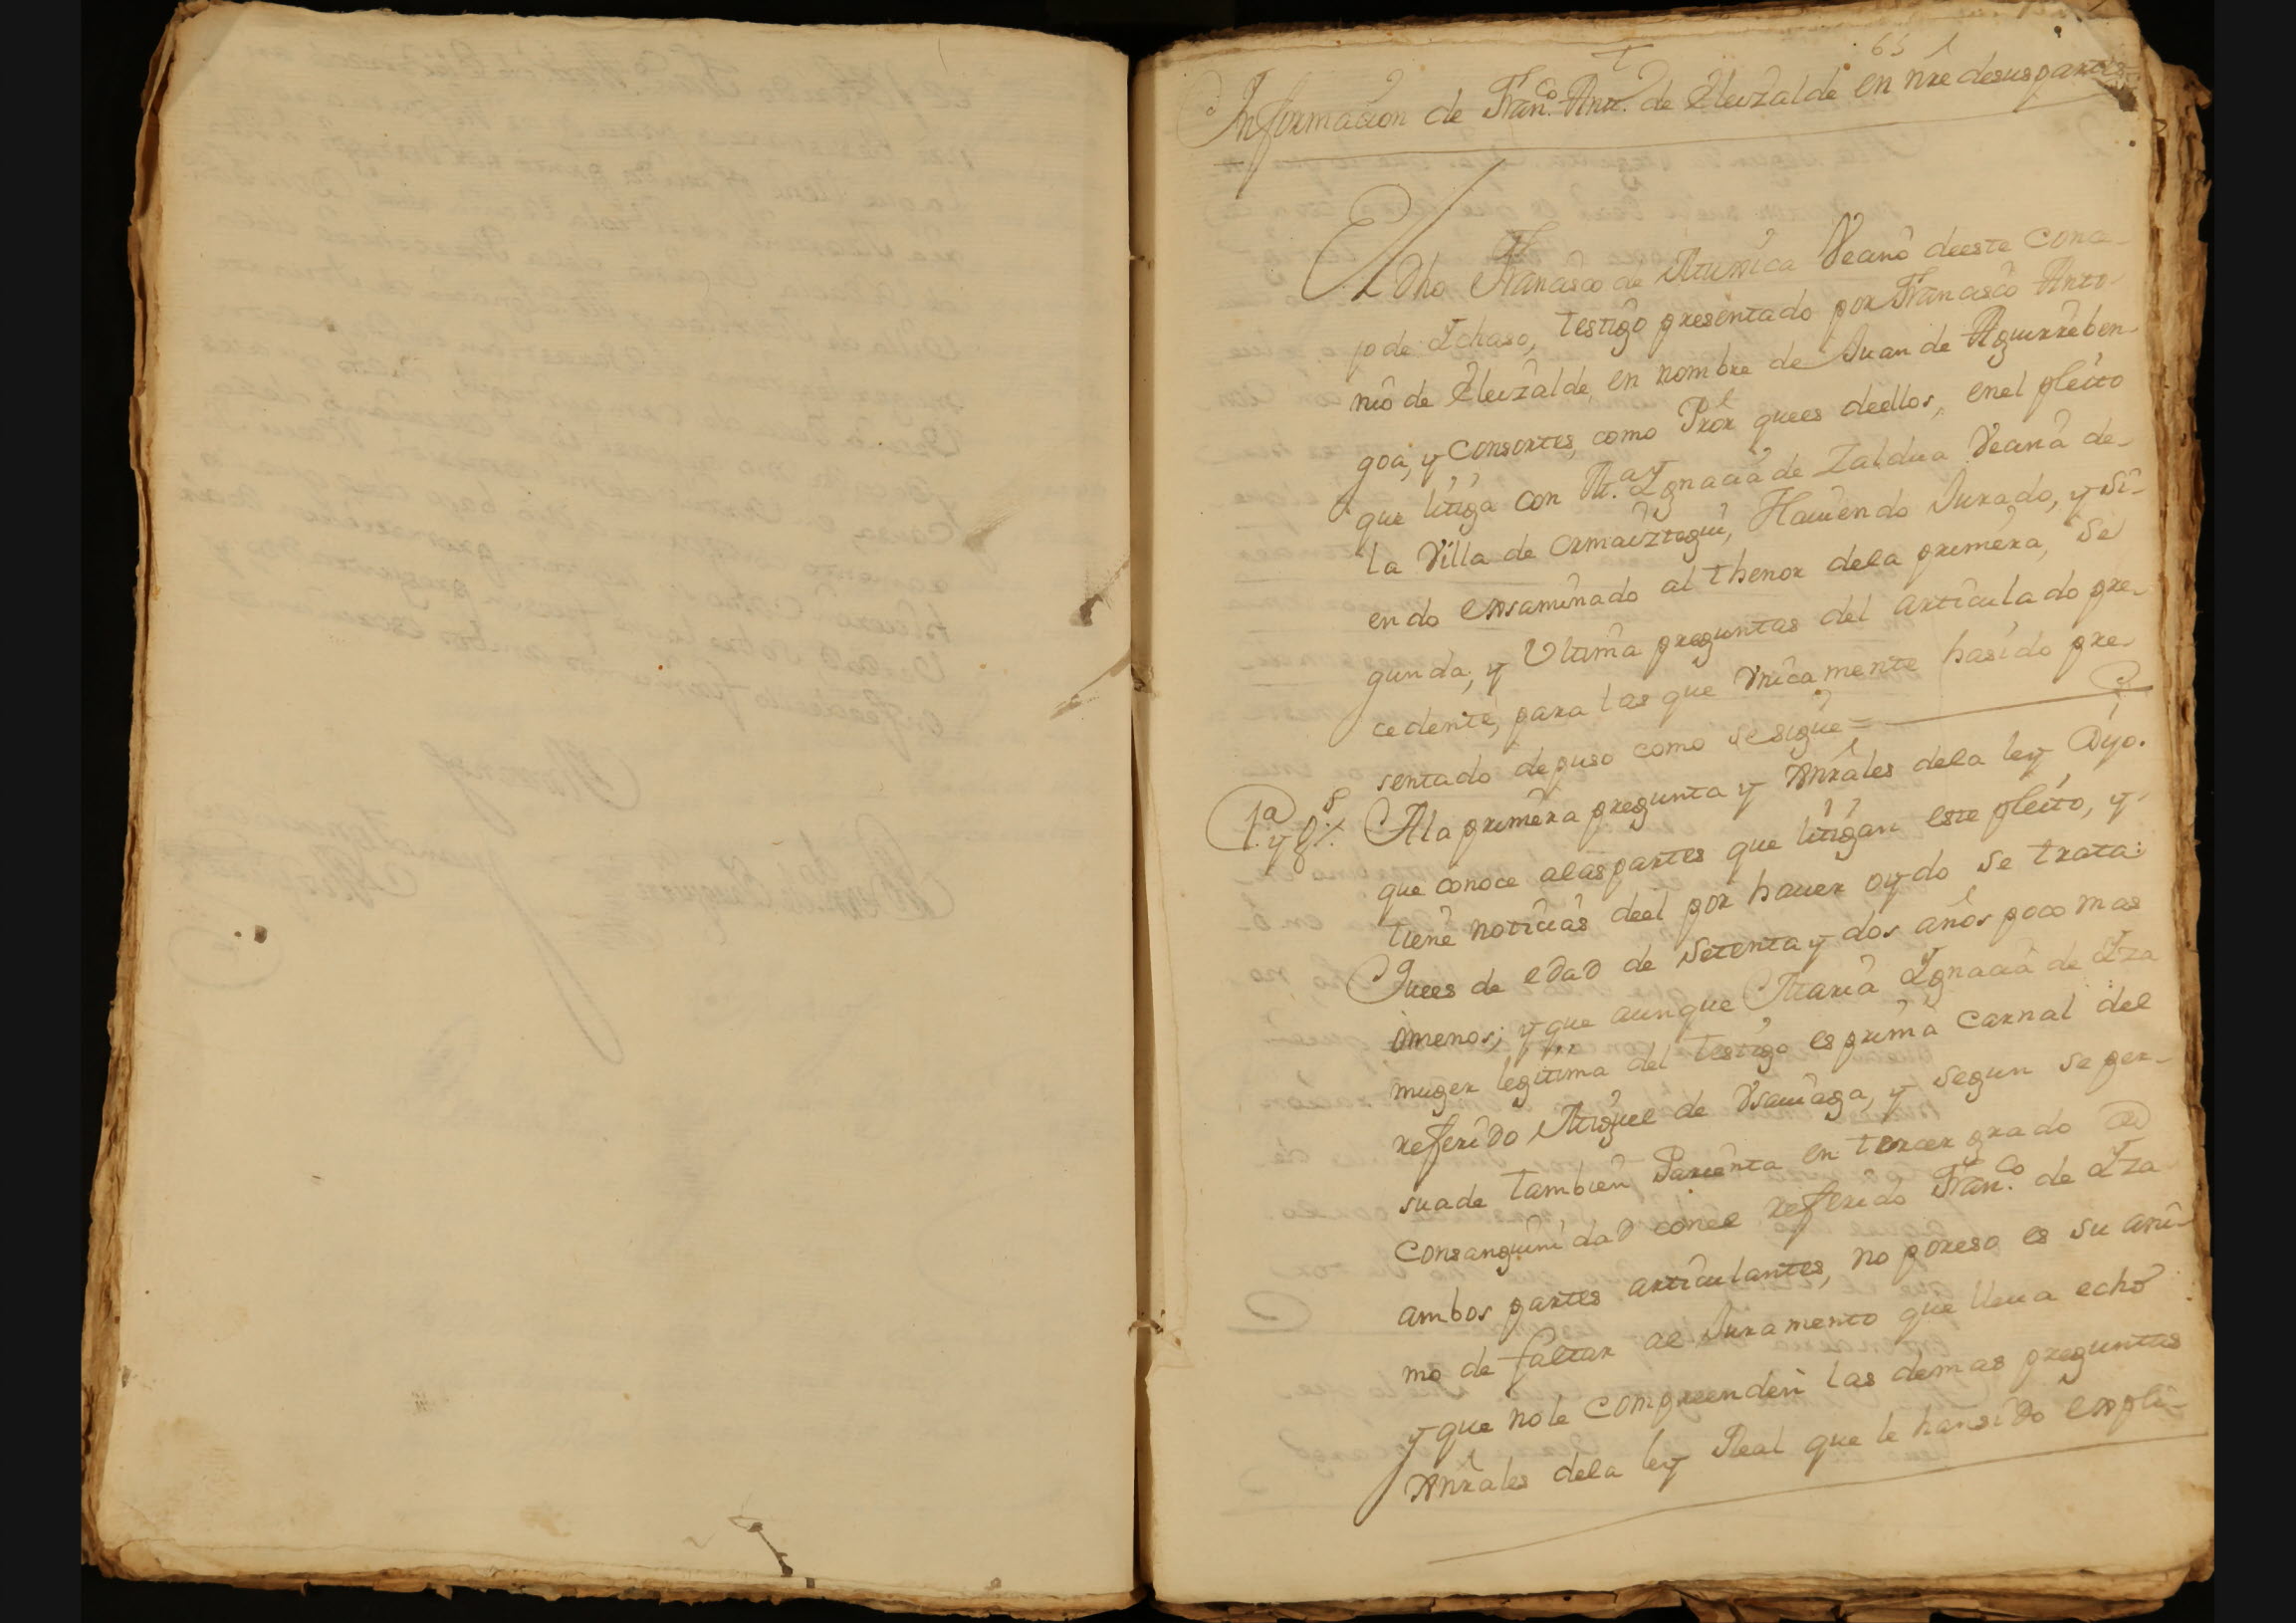 65
Informacion de Fran.co Ant.o de Eleizalde en nre desus partes
El Dho Francisco de Munica Vecino deeste conce-
jo de Ichaso, testigo presentado por Francisco Anto-
nio de Eleizalde, en nombre de Juan de Aguirreben-
goa, y consortes, como Pror quees deellos, enel pleito
que litiga con M.a Ignacia de Zaldua Vecina de-
la Villa de Ormaiztegui, Hauiendo Jurado, y Si-
endo exsaminado al thenor dela primera, Se
gunda, y Vltima preguntas del articulado pre-
cedente, para las que Vnicamente hasido pre-
sentado depuso como se sigue =
1.a y gs. Ala primera pregunta y Gnrales dela ley Dijo.
que conoce alas partes que litigan este pleito, y
tiene noticias deel por hauer oydo se trata:
Quees de edad de Setenta y dos años poco mas
omenos; y que aunque Maria Ignacia de Iza
muger legitima del testigo es prima carnal del
referido Miguel de Vsauiaga, y segun se per-
suade tambien Parienta en tercer grado de
Consanguinidad conel referido Fran.co de Iza
ambos partes articulantes, no poreso es su ani-
mo de faltar al Juramento que lleua echo
y que nole compreenden las demas preguntas
Gnrales dela ley Real que le hansido expli-